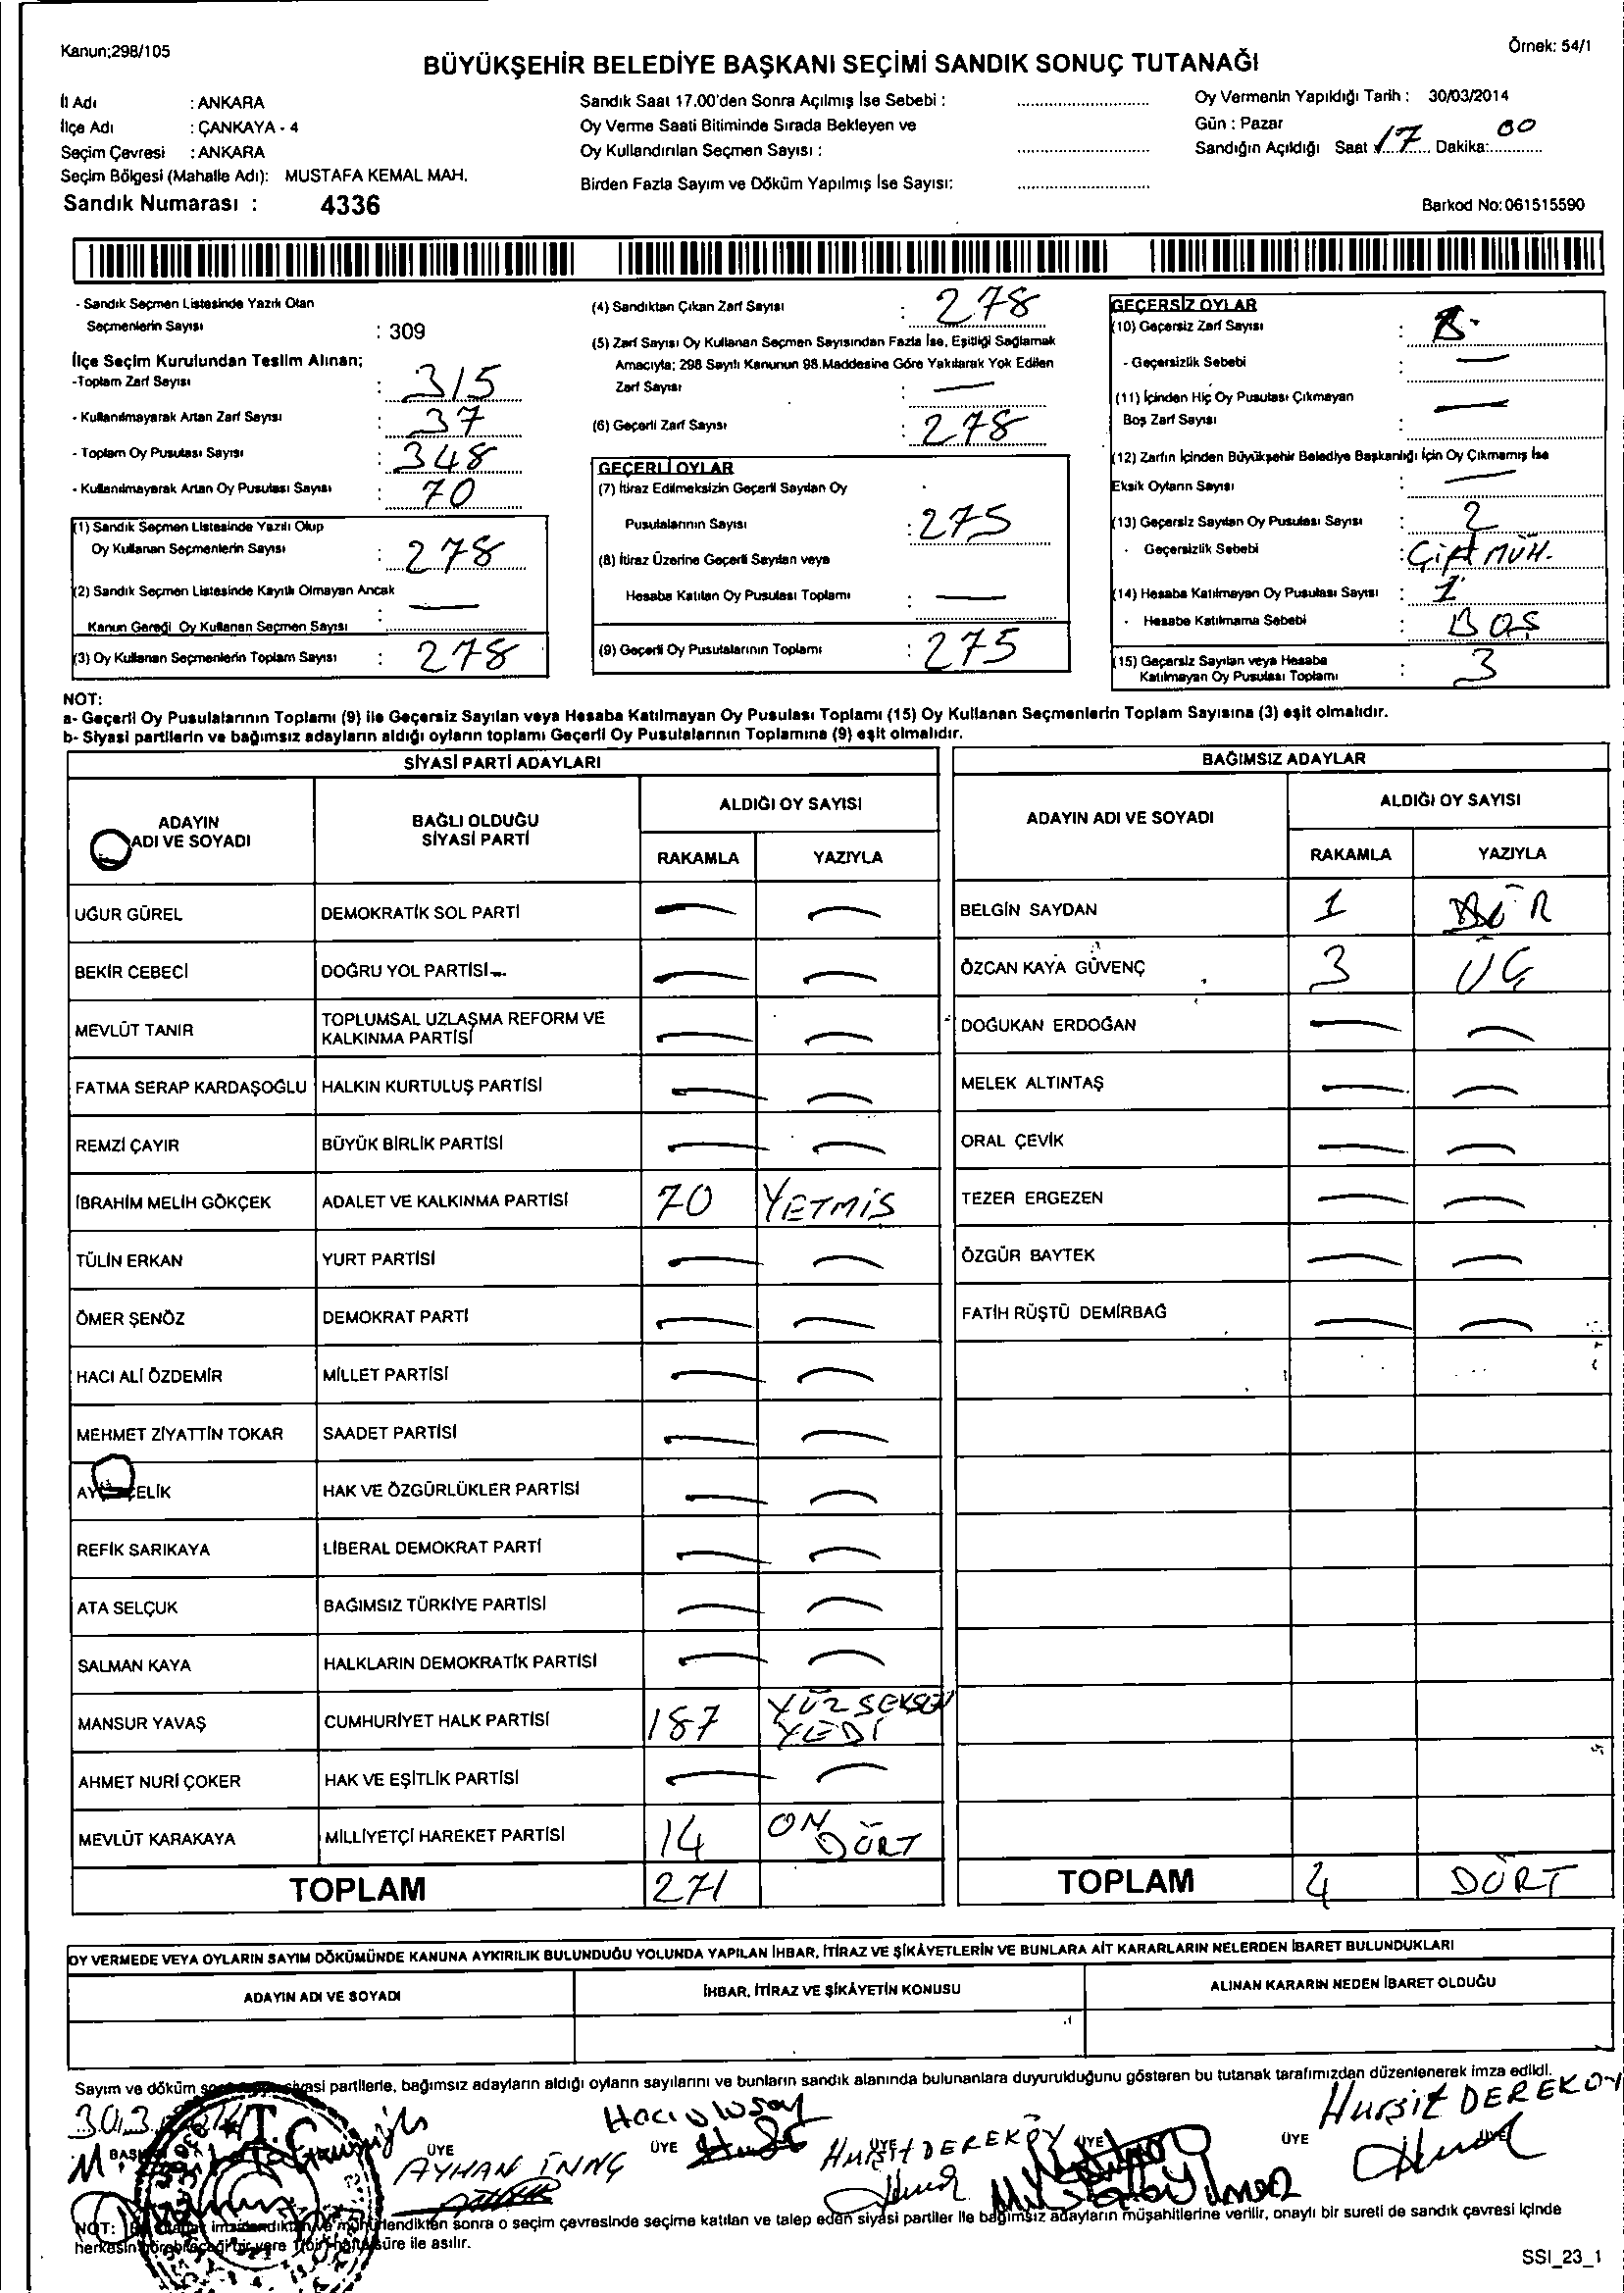 Kanun;298/105
Örnek: 54/1
BÜYÜKŞEHİR BELEDİYE BAŞKANI SEÇİMİ SANDIK SONUÇ TUTANAĞI
İl Adı : ANKARA
İlçe Adı : ÇANKAYA - 4
Seçim Çevresi : ANKARA
Seçim Bölgesi (Mahalle Adı): MUSTAFA KEMAL MAH.
Sandık Numarası : 4336
Sandık Saat 17.00'den Sonra Açılmış İse Sebebi :
Oy Verme Saati Bitiminde Sırada Bekleyen ve
Oy Kullandırılan Seçmen Sayısı :
Birden Fazla Sayım ve Döküm Yapılmış İse Sayısı:
Oy Vermenin Yapıldığı Tarih : 30/03/2014
Gün : Pazar
Sandığın Açıldığı Saat : 17 Dakika: 00
Barkod No: 061515590
- Sandık Seçmen Listesinde Yazılı Olan
Seçmenlerin Sayısı : 309
İlçe Seçim Kurulundan Teslim Alınan;
-Toplam Zarf Sayısı : 315
- Kullanılmayarak Artan Zarf Sayısı : 37
- Toplam Oy Pusulası Sayısı : 348
- Kullanılmayarak Artan Oy Pusulası Sayısı : 70
(1) Sandık Seçmen Listesinde Yazılı Olup
Oy Kullanan Seçmenlerin Sayısı : 278
(2) Sandık Seçmen Listesinde Kayıtlı Olmayan Ancak
Kanun Gereği Oy Kullanan Seçmen Sayısı : —
(3) Oy Kullanan Seçmenlerin Toplam Sayısı : 278
(4) Sandıktan Çıkan Zarf Sayısı : 278
(5) Zarf Sayısı Oy Kullanan Seçmen Sayısından Fazla İse, Eşitliği Sağlamak
Amacıyla; 298 Sayılı Kanunun 98.Maddesine Göre Yakılarak Yok Edilen
Zarf Sayısı : —
(6) Geçerli Zarf Sayısı : 278
GEÇERLİ OYLAR
(7) İtiraz Edilmeksizin Geçerli Sayılan Oy
Pusulalarının Sayısı : 275
(8) İtiraz Üzerine Geçerli Sayılan veya
Hesaba Katılan Oy Pusulası Toplamı : —
(9) Geçerli Oy Pusulalarının Toplamı : 275
GEÇERSİZ OYLAR
(10) Geçersiz Zarf Sayısı :
- Geçersizlik Sebebi : —
(11) İçinden Hiç Oy Pusulası Çıkmayan
Boş Zarf Sayısı : —
(12) Zarfın İçinden Büyükşehir Belediye Başkanlığı İçin Oy Çıkmamış İse
Eksik Oyların Sayısı : —
(13) Geçersiz Sayılan Oy Pusulası Sayısı : 2
- Geçersizlik Sebebi : ÇİFT MÜH.
(14) Hesaba Katılmayan Oy Pusulası Sayısı : 1
- Hesaba Katılmama Sebebi : BOŞ
(15) Geçersiz Sayılan veya Hesaba
Katılmayan Oy Pusulası Toplamı : 3
NOT:
a- Geçerli Oy Pusulalarının Toplamı (9) ile Geçersiz Sayılan veya Hesaba Katılmayan Oy Pusulası Toplamı (15) Oy Kullanan Seçmenlerin Toplam Sayısına (3) eşit olmalıdır.
b- Siyasi partilerin ve bağımsız adayların aldığı oyların toplamı Geçerli Oy Pusulalarının Toplamına (9) eşit olmalıdır.
SİYASİ PARTİ ADAYLARI
ADAYIN ADI VE SOYADI
BAĞLI OLDUĞU SİYASİ PARTİ
ALDIĞI OY SAYISI
RAKAMLA YAZIYLA
UĞUR GÜREL DEMOKRATİK SOL PARTİ — —
BEKİR CEBECİ DOĞRU YOL PARTİSİ — —
MEVLÜT TANIR TOPLUMSAL UZLAŞMA REFORM VE KALKINMA PARTİSİ — —
FATMA SERAP KARDAŞOĞLU HALKIN KURTULUŞ PARTİSİ — —
REMZİ ÇAYIR BÜYÜK BİRLİK PARTİSİ — —
İBRAHİM MELİH GÖKÇEK ADALET VE KALKINMA PARTİSİ 70 YETMİS
TÜLİN ERKAN YURT PARTİSİ — —
ÖMER ŞENÖZ DEMOKRAT PARTİ — —
HACI ALİ ÖZDEMİR MİLLET PARTİSİ — —
MEHMET ZİYATTİN TOKAR SAADET PARTİSİ — —
ÇELİK HAK VE ÖZGÜRLÜKLER PARTİSİ — —
REFİK SARIKAYA LİBERAL DEMOKRAT PARTİ — —
ATA SELÇUK BAĞIMSIZ TÜRKİYE PARTİSİ — —
SALMAN KAYA HALKLARIN DEMOKRATİK PARTİSİ — —
MANSUR YAVAŞ CUMHURİYET HALK PARTİSİ 187 YÜZ SEKSEN YEDİ
AHMET NURİ ÇOKER HAK VE EŞİTLİK PARTİSİ — —
MEVLÜT KARAKAYA MİLLİYETÇİ HAREKET PARTİSİ 14 ON DÖRT
TOPLAM 271
BAĞIMSIZ ADAYLAR
ADAYIN ADI VE SOYADI
ALDIĞI OY SAYISI
RAKAMLA YAZIYLA
BELGİN SAYDAN 1 BİR
ÖZCAN KAYA GÜVENÇ 3 ÜÇ
DOĞUKAN ERDOĞAN — —
MELEK ALTINTAŞ — —
ORAL ÇEVİK — —
TEZER ERGEZEN — —
ÖZGÜR BAYTEK — —
FATİH RÜŞTÜ DEMİRBAĞ — —
TOPLAM 4 DÖRT
OY VERMEDE VEYA OYLARIN SAYIM DÖKÜMÜNDE KANUNA AYKIRILIK BULUNDUĞU YOLUNDA YAPILAN İHBAR, İTİRAZ VE ŞİKÂYETLERİN VE BUNLARA AİT KARARLARIN NELERDEN İBARET BULUNDUKLARI
ADAYIN ADI VE SOYADI
İHBAR, İTİRAZ VE ŞİKÂYETİN KONUSU
ALINAN KARARIN NEDEN İBARET OLDUĞU
Sayım ve döküm siyasi partilerle, bağımsız adayların aldığı oyların sayılarını ve bunların sandık alanında bulunanlara duyurulduğunu gösteren bu tutanak tarafımızdan düzenlenerek imza edildi.
ÜYE ÜYE ÜYE ÜYE ÜYE ÜYE
AYHAN İNNÇ
HURŞİT DEREKÖY
HURŞİT DEREKÖY
NOT: sonra o seçim çevresinde seçime katılan ve talep eden siyasi partiler ile bağımsız adayların müşahitlerine verilir, onaylı bir sureti de sandık çevresi içinde
süre ile asılır.
SSI_23_1